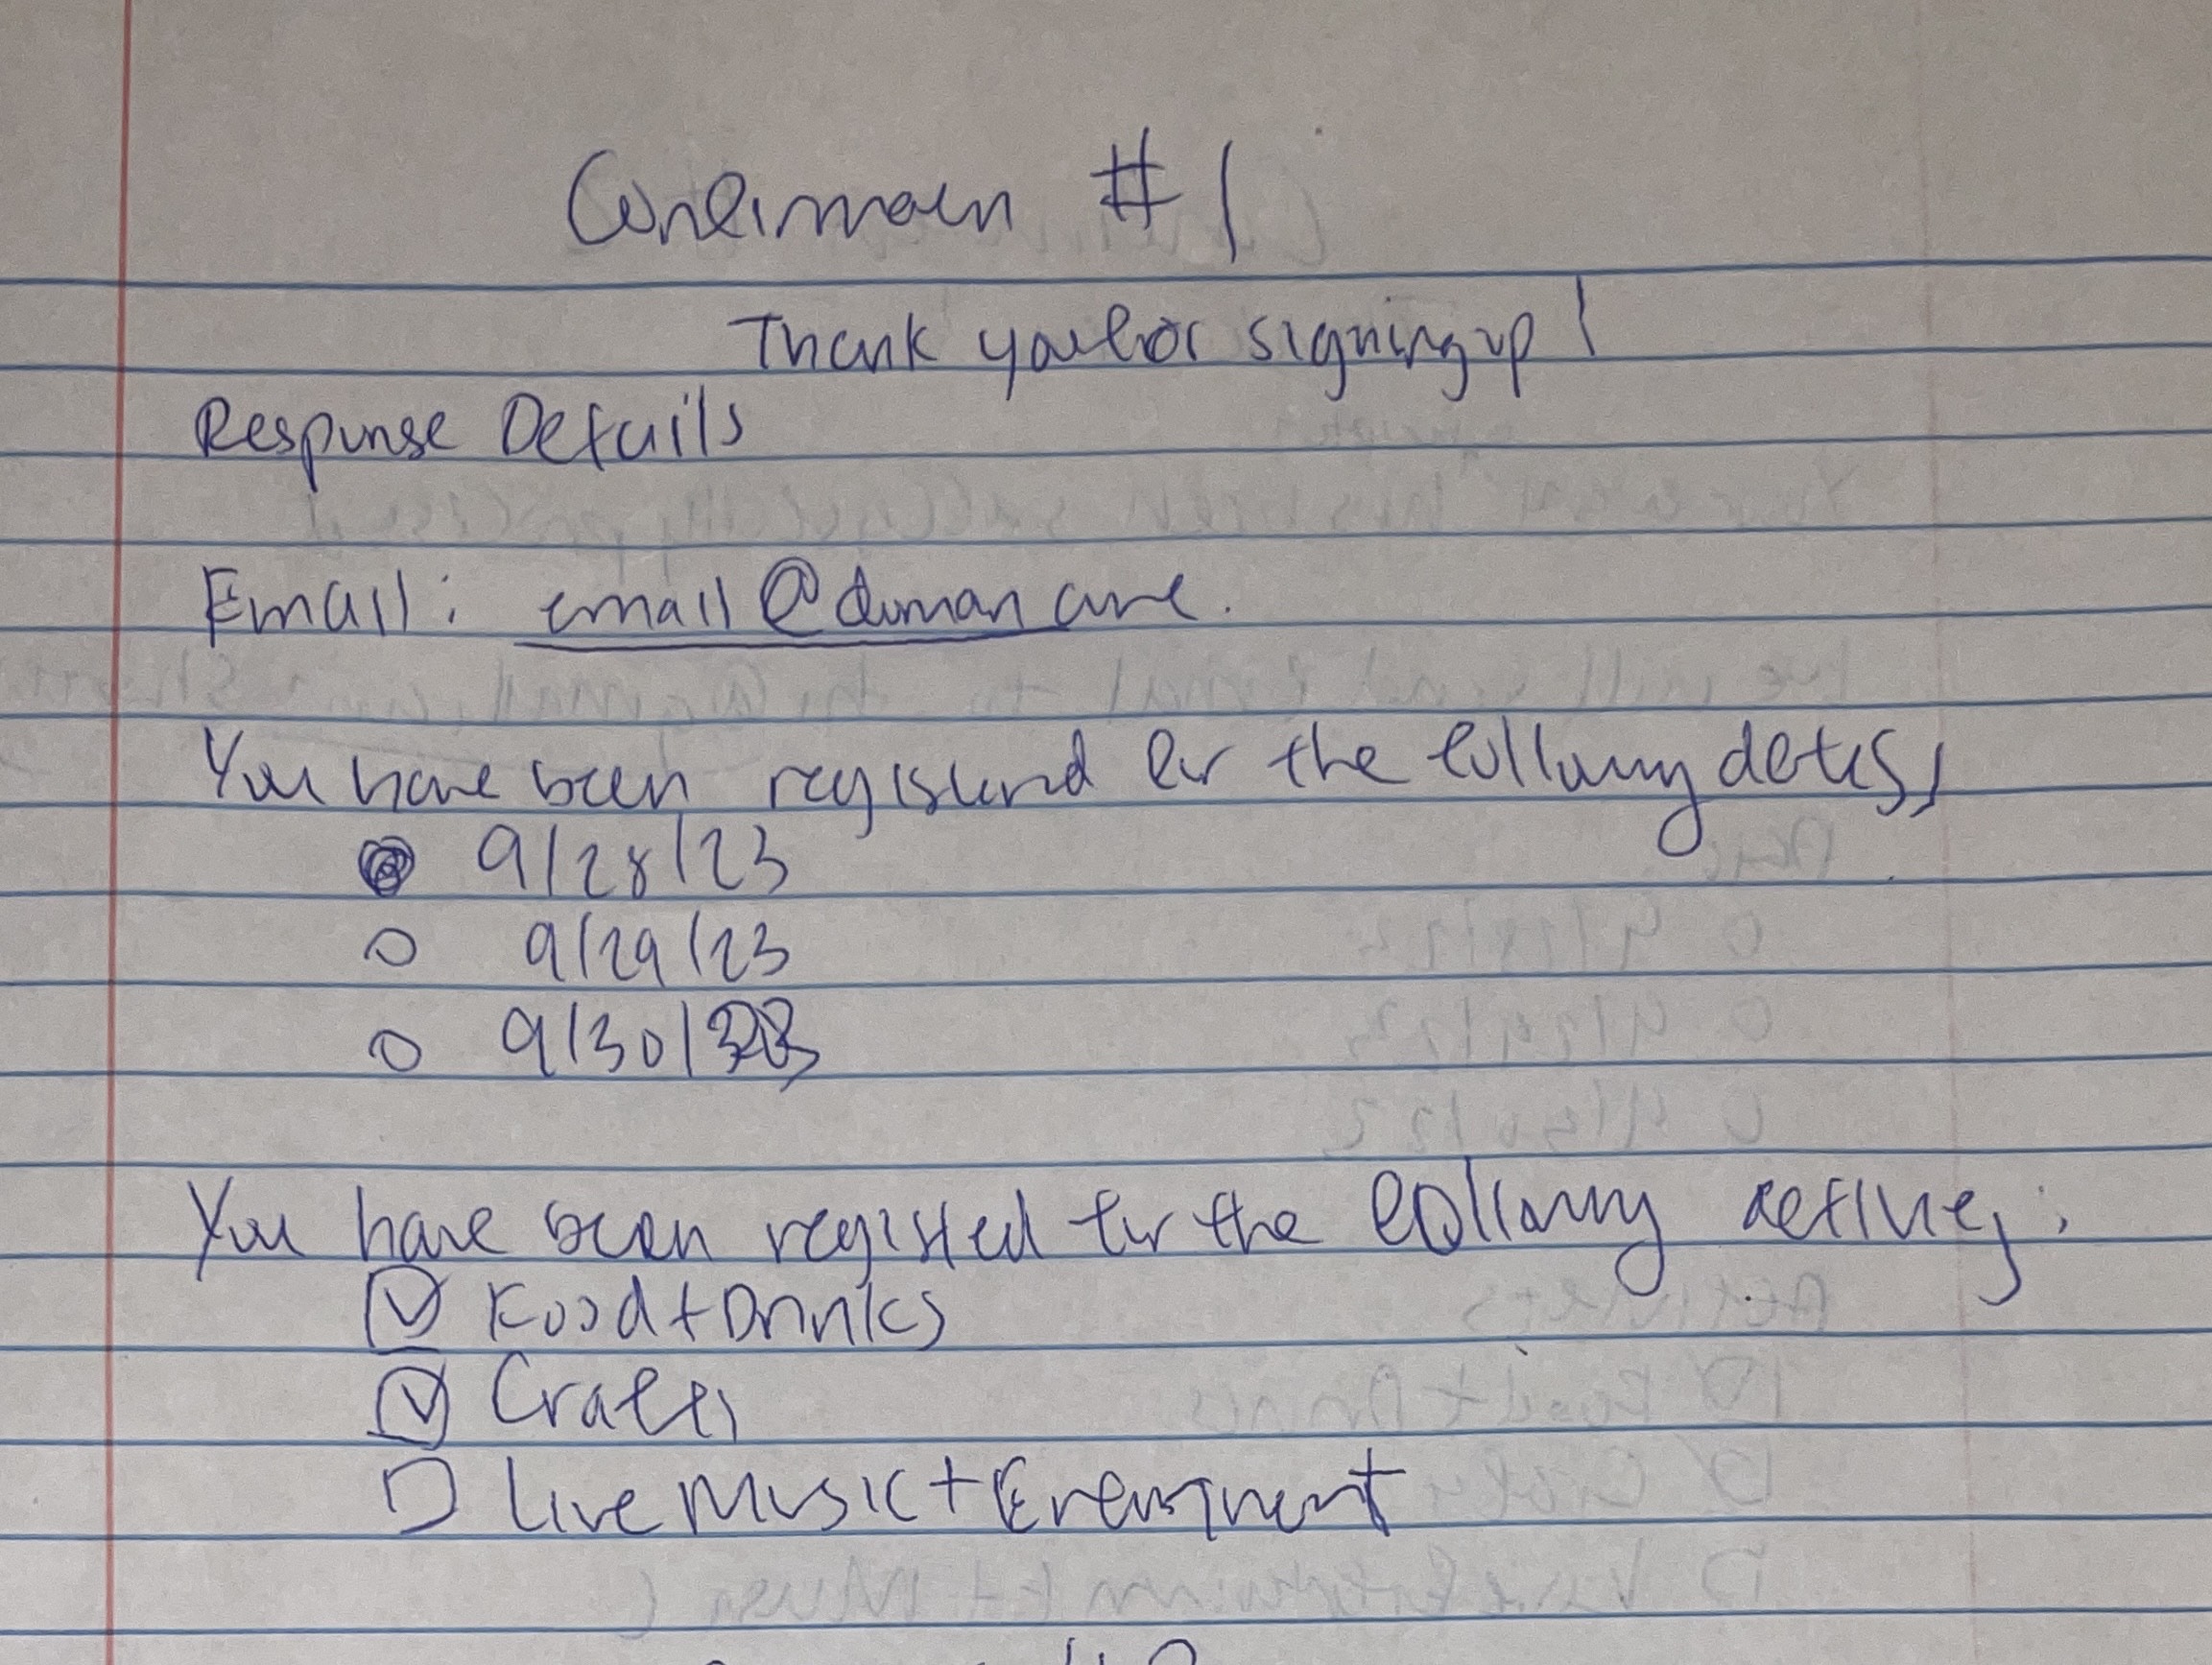 Confirmation #1
Thank you for signing up!
Response Details
Email: email@domain
You have been registered for the following dates:
9/28/23
9/29/23
9/30/23
You have been registered for the following
Food + Drinks
Crafts
Live Music +